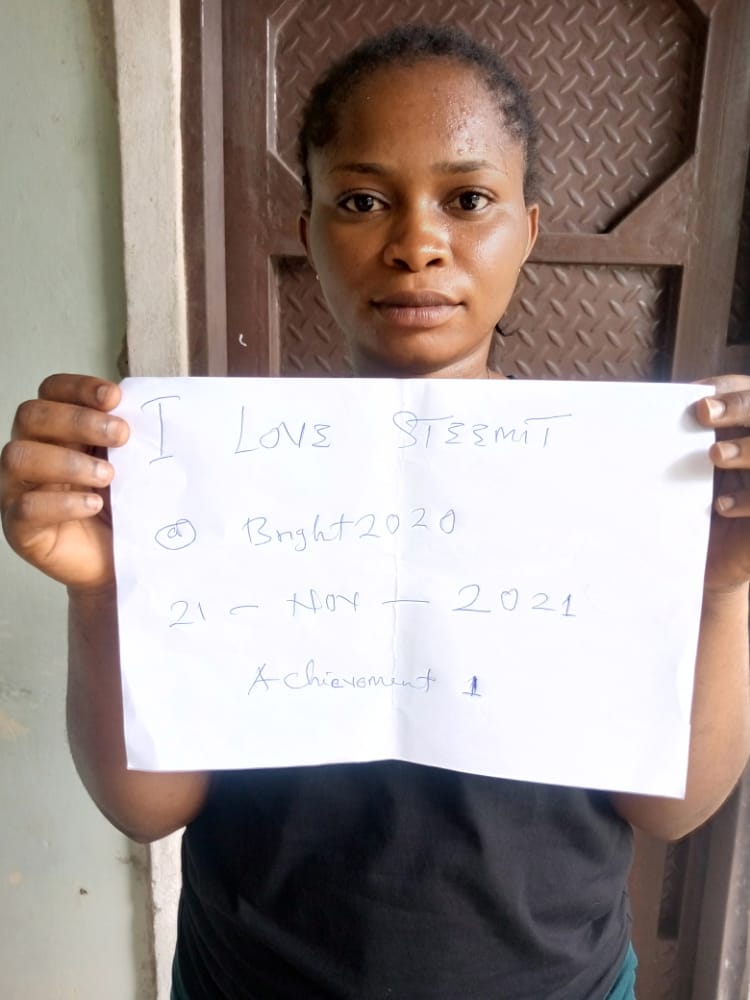 I LOVE STEEMIT
@ Bright2020
21 - NOV - 2021
Achievement 1